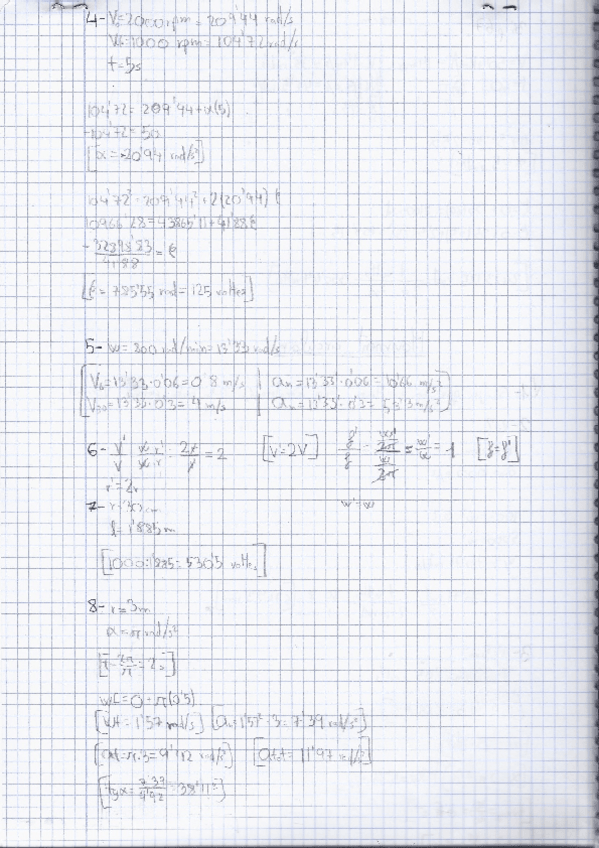 4- V₀=2000 rpm = 209'44 rad/s
Vf=1000 rpm = 104'72 rad/s
t=5s
104'72 = 209'44 + α(5)
-104'72 = 5α
[α = -20'94 rad/s²]
104'72² = 209'44² + 2(20'94)
10966'28 = 43865'11 + 41'88
= 785'55 rad = 125 voltes]
5- w = 800 rd/min = 13'33 rad/s
V₆ = 13'33 · 0'06 = 0'8 m/s | an = 13'33² · 0'06 = 10'66 m/s²
V₃₀ = 13'33 · 0'3 = 4 m/s | an = 13'33² · 0'3 = 53'3 m/s²
6- V'/V = w·r'/w·r = 2r/r = 2 [V'=2V] = w'/w = 1
r' = 2r
w'=w
7-
1'885 m
[1000:1'885 = 530'5 voltes]
8- r = 3m
α = π rad/s²
0 + π(0'5)
= 1'57 rad/s] [an = 1'57² · 3 = 7'39 rad/s²]
[at = π·3 = 9'42 rad/s²] [atot = 11'97 rad/s²]